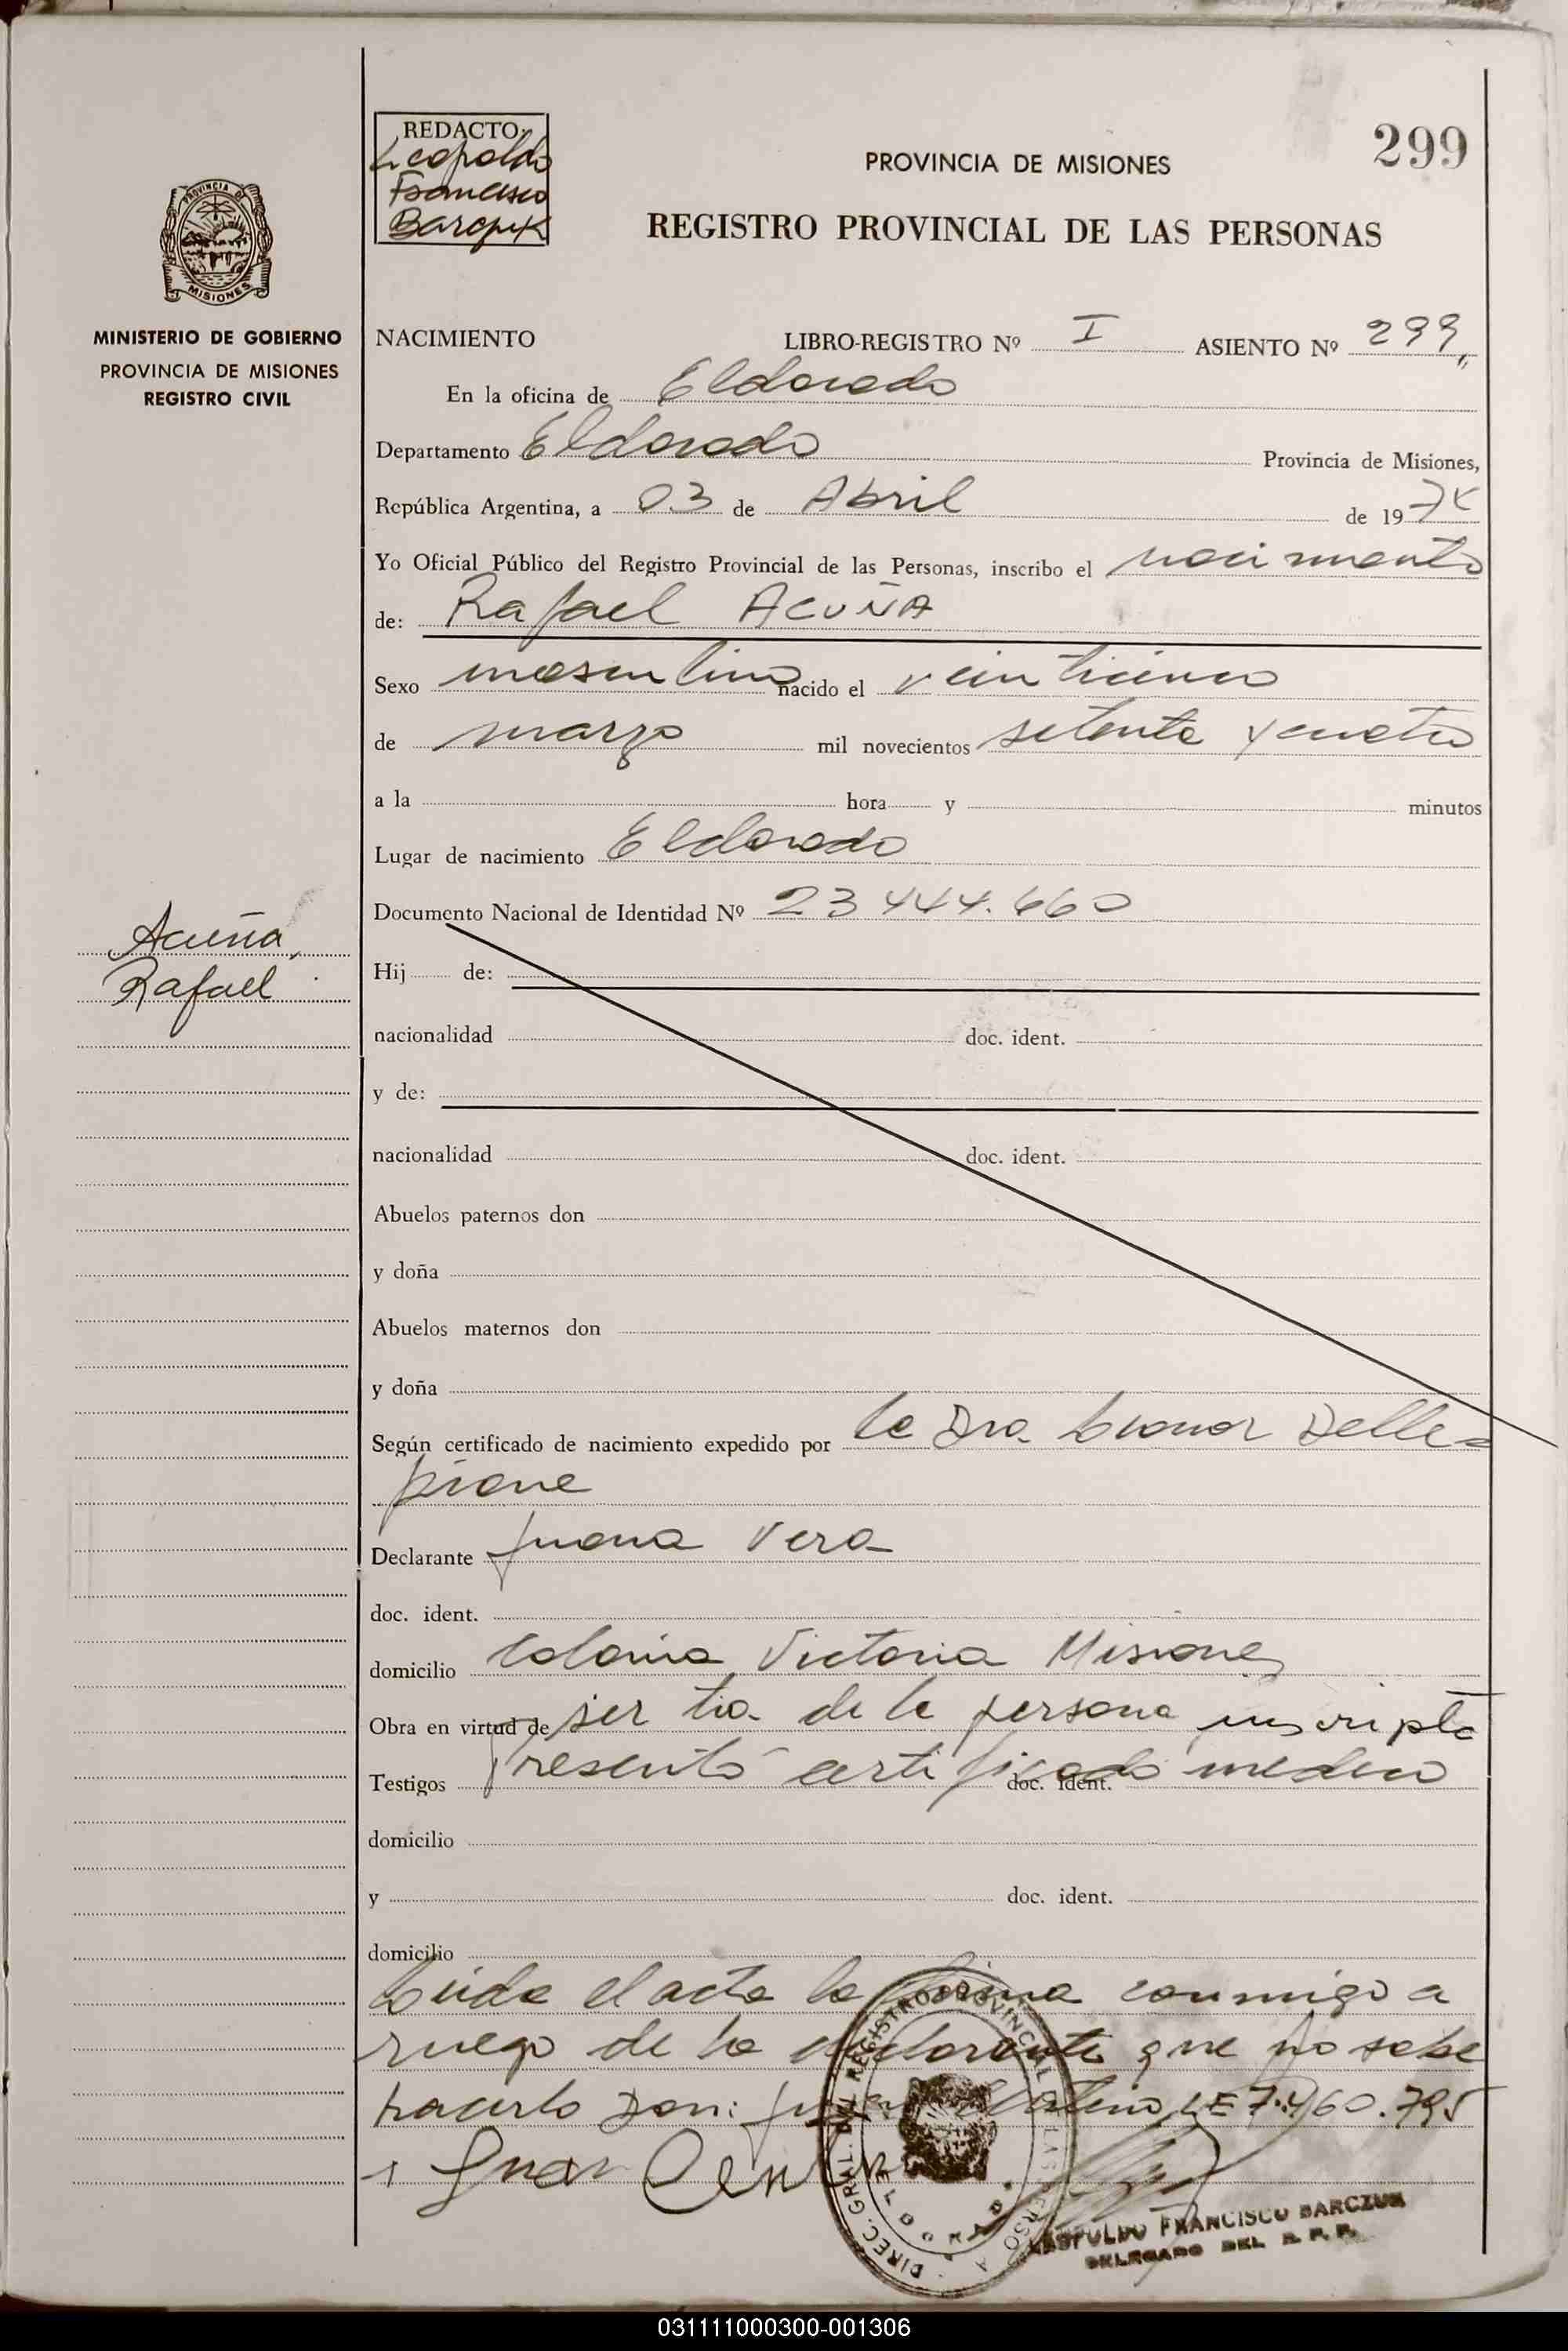 299
REDACTO:
Leopoldo
Francisco
Barczuk
PROVINCIA DE MISIONES
REGISTRO PROVINCIAL DE LAS PERSONAS
PROVINCIA DE
MISIONES
MINISTERIO DE GOBIERNO
PROVINCIA DE MISIONES
REGISTRO CIVIL
NACIMIENTO LIBRO-REGISTRO Nº I ASIENTO Nº 299
En la oficina de Eldorado
Departamento Eldorado Provincia de Misiones,
República Argentina, a 03 de Abril de 1974
Yo Oficial Público del Registro Provincial de las Personas, inscribo el nacimiento
de: Rafael ACUÑA
Sexo masculino nacido el veinticinco
de marzo mil novecientos setenta y cuatro
a la hora y minutos
Lugar de nacimiento Eldorado
Documento Nacional de Identidad Nº 23 444.660
Acuña,
Rafael
Hij de:
nacionalidad doc. ident.
y de:
nacionalidad doc. ident.
Abuelos paternos don
y doña
Abuelos maternos don
y doña
Según certificado de nacimiento expedido por la Dra. Leonor Delle-
piane
Declarante Juana Vera
doc. ident.
domicilio Colonia Victoria Misiones
Obra en virtud de ser tia de la persona inscripta
Testigos Presentó certificado medico doc. ident.
domicilio
y doc. ident.
domicilio
Leida el acta la firma conmigo a
ruego de la declarante que no sabe
hacerlo Don: LE 7.460.795
Juan
DIREC. GRAL. DEL REGISTRO PROVINCIAL DE LAS PERSONAS
ELDORADO
LEOPOLDO FRANCISCO BARCZUK
DELEGADO DEL R. P. P.
031111000300-001306